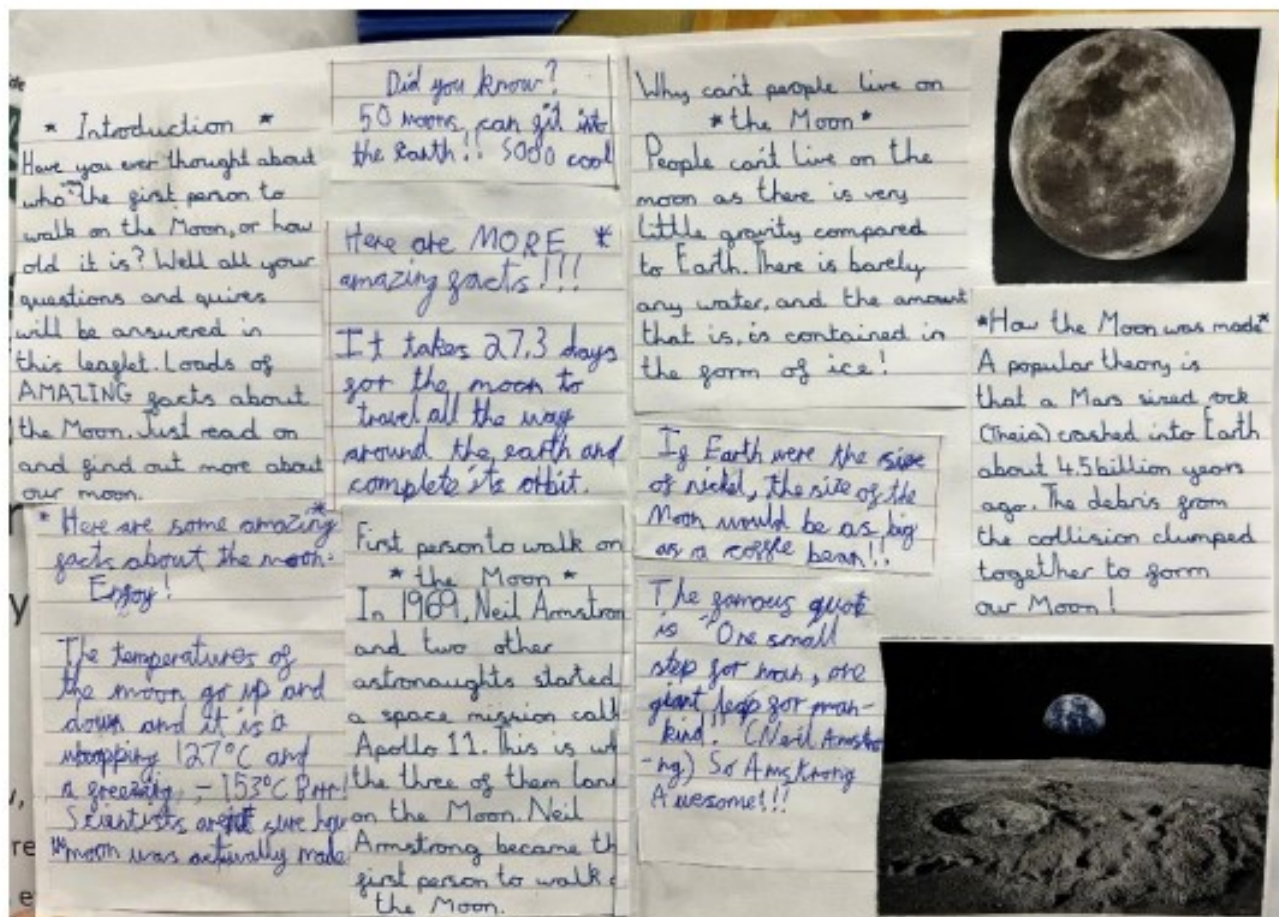 * Introduction *
Have you ever thought about
who the first person to
walk on the Moon, or how
old it is? Well all your
questions and quires
will be answered in
this leaflet. Loads of
AMAZING facts about
the Moon. Just read on
and find out more about
our moon.
* Here are some amazing *
facts about the moon.
Enjoy!
The temperatures of
the moon go up and
down and it is a
whopping 127°C and
a freezing, -153°C Brrr!
Scientists aren't sure how
the moon was actually made
Did you know?
50 moons, can fit into
the earth!! Sooo cool
Here are MORE *
amazing facts!!!
It takes 27.3 days
for the moon to
travel all the way
around the earth and
complete its orbit.
First person to walk on
* the Moon *
In 1969, Neil Armstron
and two other
astronaughts started
a space mission call
Apollo 11. This is wh
the three of them lan
on the Moon. Neil
Armstrong became th
first person to walk
the Moon.
Why can't people live on
* the Moon *
People can't live on the
moon as there is very
little gravity compared
to Earth. There is barely
any water, and the amount
that is, is contained in
the form of ice!
If Earth were the size
of nickel, the size of the
Moon would be as big
as a coffe bean!!
The famous quote
is "One small
step for man, one
giant leap for man-
kind!! (Neil Amstro
-ng) So Amstrong
Awesome!!!
*How the Moon was made*
A popular theory is
that a Mars sized rock
(Theia) crashed into Earth
about 4.5 billion years
ago. The debris from
the collision clumped
together to form
our Moon!